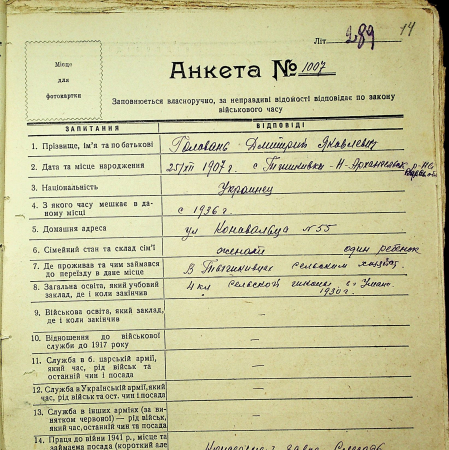 Літ. 289 14
Місце
для
фотокартки
Анкета № 1007
Заповнюється власноручно, за неправдиві відомості відповідає по закону
військового часу
ЗАПИТАННЯ ВІДПОВІДІ
1. Прізвище, ім'я та по батькові Головань Дмитрий Яковлевич
2. Дата та місце народження 25/XII 1907 г. с.
3. Національність Украинец
4. З якого часу мешкає в да-
ному місці с 1936 г.
5. Домашня адреса ул Коновальца N 55
6. Сімейний стан та склад сім'ї женат один ребенок
7. Де проживав та чим займався
до переїзду в дане місце В сельским хозяйст.
8. Загальна освіта, який учбовий
заклад, де і коли закінчив 4 кл сельской школи в г. Умань
1930 г.
9. Військова освіта, який заклад,
де і коли закінчив —
10. Відношення до військової
служби до 1917 року —
11. Служба в б. царській армії,
який час, рід військ та
останній чин і посада —
12. Служба в Українській армії, який
час, рід військ та ост. чин і посада —
13. Служба в інших арміях (за ви-
нятком червоної) — рід військ,
який час, останній чин та посада —
14. Праця до війни 1941 р., місце та
займаема посада (короткий опе